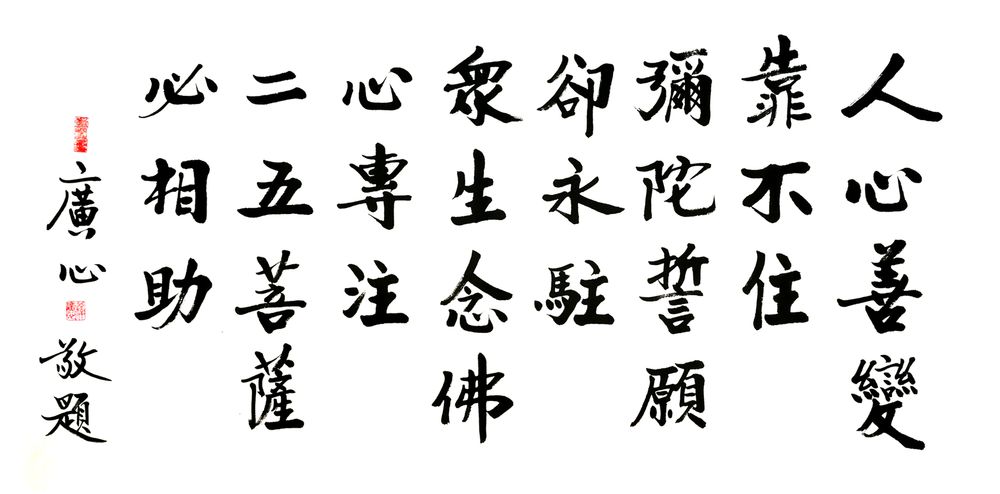 人心善變
靠不住
彌陀誓願
卻永駐
眾生念佛
心專注
二五菩薩
必相助
廣心敬題